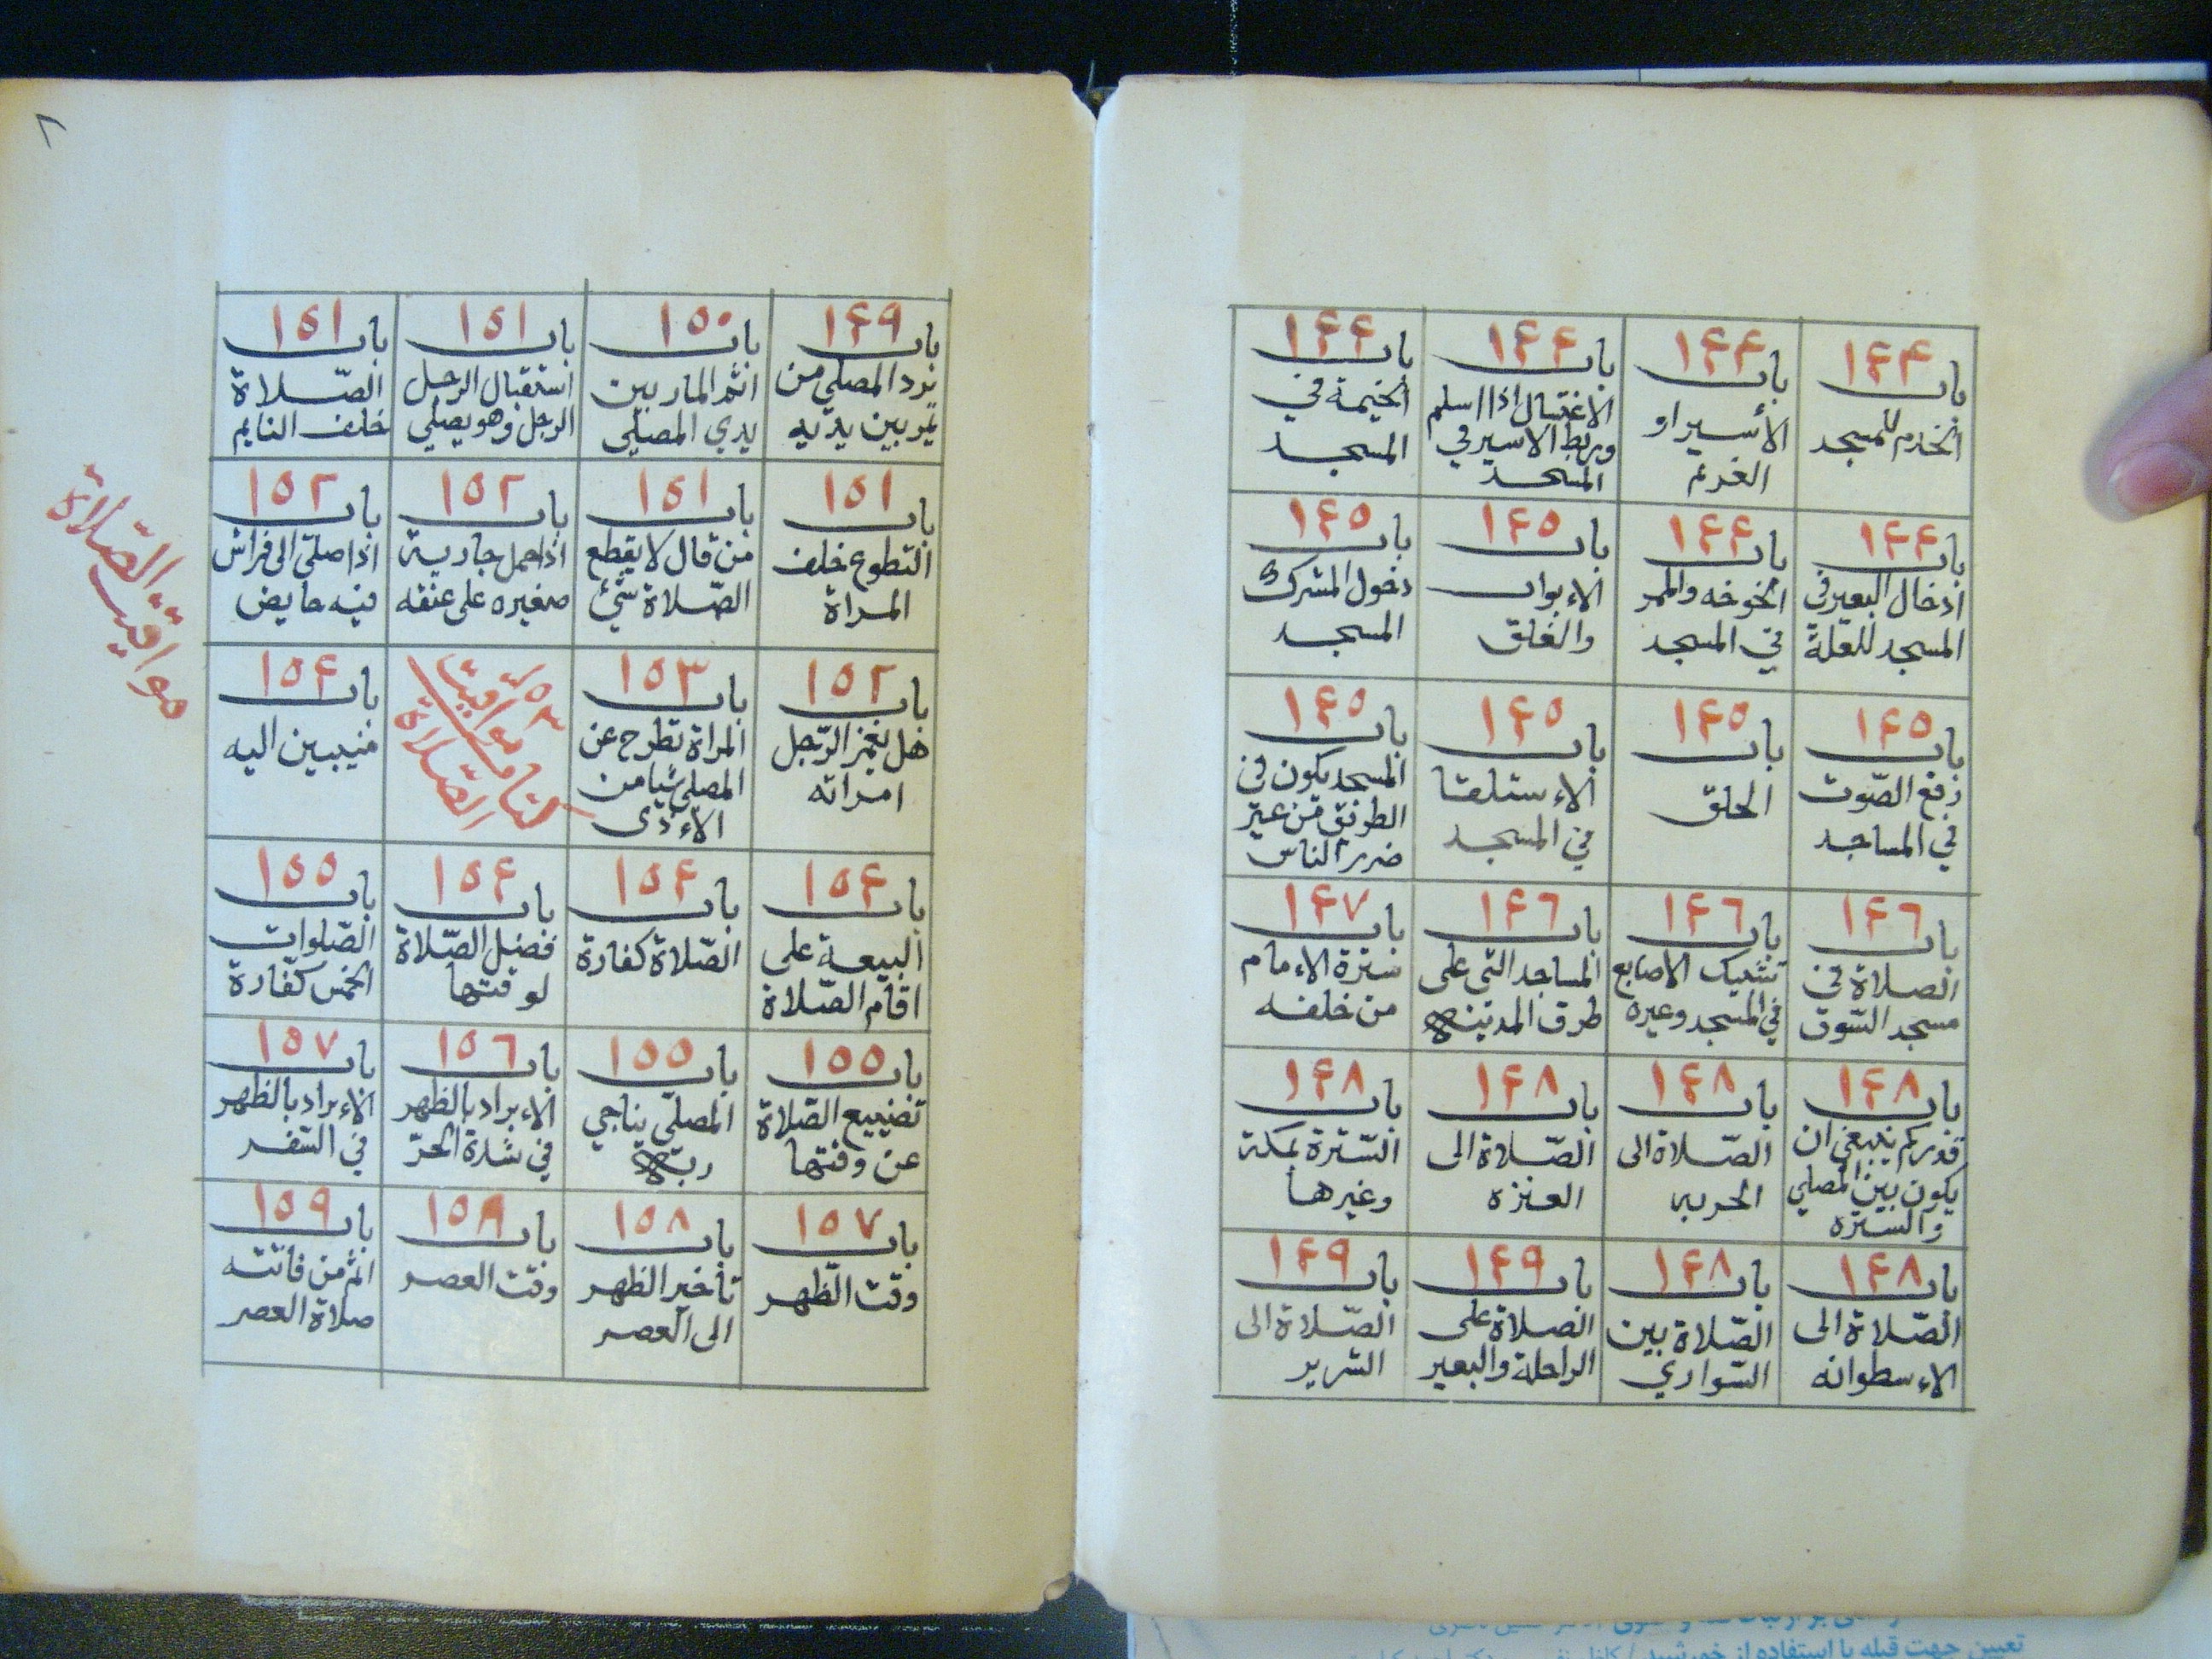 باب ١٤٤
الخدم للمسجد
باب ١٤٤
الأسير او
الغريم
باب ١٤٤
الاغتسال اذا اسلم
وربط الاسير في
المسجد
باب ١٤٤
الخيمة في
المسجد
باب ١٤٤
ادخال البعير في
المسجد للعلة
باب ١٤٤
الخوخه والممر
في المسجد
باب ١٤٥
الابواب
والغلق
باب ١٤٥
دخول المشرك
المسجد
باب ١٤٥
رفع الصّوت
في المساجد
باب ١٤٥
الحلق
باب ١٤٥
الاستلقا
في المسجد
باب ١٤٥
المسجد يكون في
الطريق من غير
ضرر الناس
باب ١٤٦
الصلاة في
مسجد السّوق
باب ١٤٦
تشبيك الاصابع
في المسجد وغيره
باب ١٤٦
المساجد التي على
طرق المدينه
باب ١٤٧
سترة الامام
من خلفه
باب ١٤٨
قدر كم ينبغي ان
يكون بين المصلي
والستره
باب ١٤٨
الصّلاة الى
الحربه
باب ١٤٨
الصّلاة الى
العنزه
باب ١٤٨
السّترة بمكة
وغيرها
باب ١٤٨
الصّلاة الى
الاسطوانه
باب ١٤٨
الصّلاة بين
السّواري
باب ١٤٩
الصلاة على
الراحلة والبعير
باب ١٤٩
الصّلاة الى
السّرير
٢
باب ١٤٩
يرد المصلي من
يمر بين يديه
باب ١٥٠
اثم المار بين
يدي المصلي
باب ١٥١
استقبال الرجل
الرجل وهو يصلي
باب ١٥١
الصّلاة
خلف النايم
باب ١٥١
التطوع خلف
المراة
باب ١٥١
من قال لا يقطع
الصّلاة شيء
باب ١٥٢
اذا حمل جارية
صغيره على عنقه
باب ١٥٢
اذا صلى الى فراش
فيه حايض
باب ١٥٢
هل يغمز الرّجل
امراته
باب ١٥٣
المراة تطرح عن
المصلي شيا من
الاذى
١٥٣
كتاب مواقيت
الصّلاة
باب ١٥٤
منيبين اليه
مواقيت الصّلاة
باب ١٥٤
البيعة على
اقام الصّلاة
باب ١٥٤
الصّلاة كفارة
باب ١٥٤
فضل الصّلاة
لوقتها
باب ١٥٥
الصّلوات
الخمس كفّارة
باب ١٥٥
تضييع الصّلاة
عن وقتها
باب ١٥٥
المصلّي يناجي
ربه
باب ١٥٦
الابراد بالظهر
في شدة الحرّ
باب ١٥٧
الابراد بالظهر
في السّفر
باب ١٥٧
وقت الظّهر
باب ١٥٨
تاخير الظهر
الى العصر
باب ١٥٨
وقت العصر
باب ١٥٩
اثم من فاتته
صلاة العصر
تعيين جهت قبله با استفاده از خورشيد